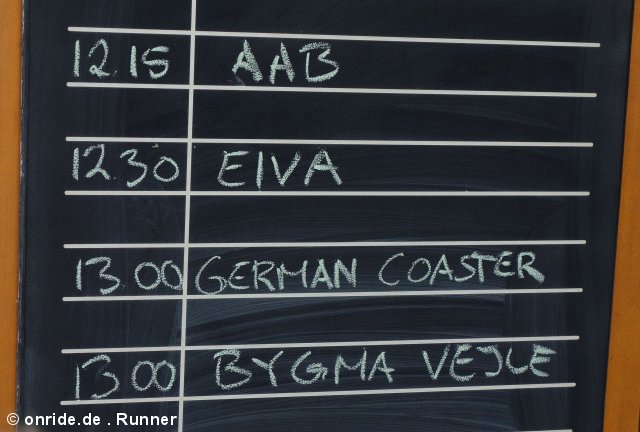 12.15 AAB
12.30 EIVA
13.00 GERMAN COASTER
13.00 BYGMA VEJLE
© onride.de . Runner